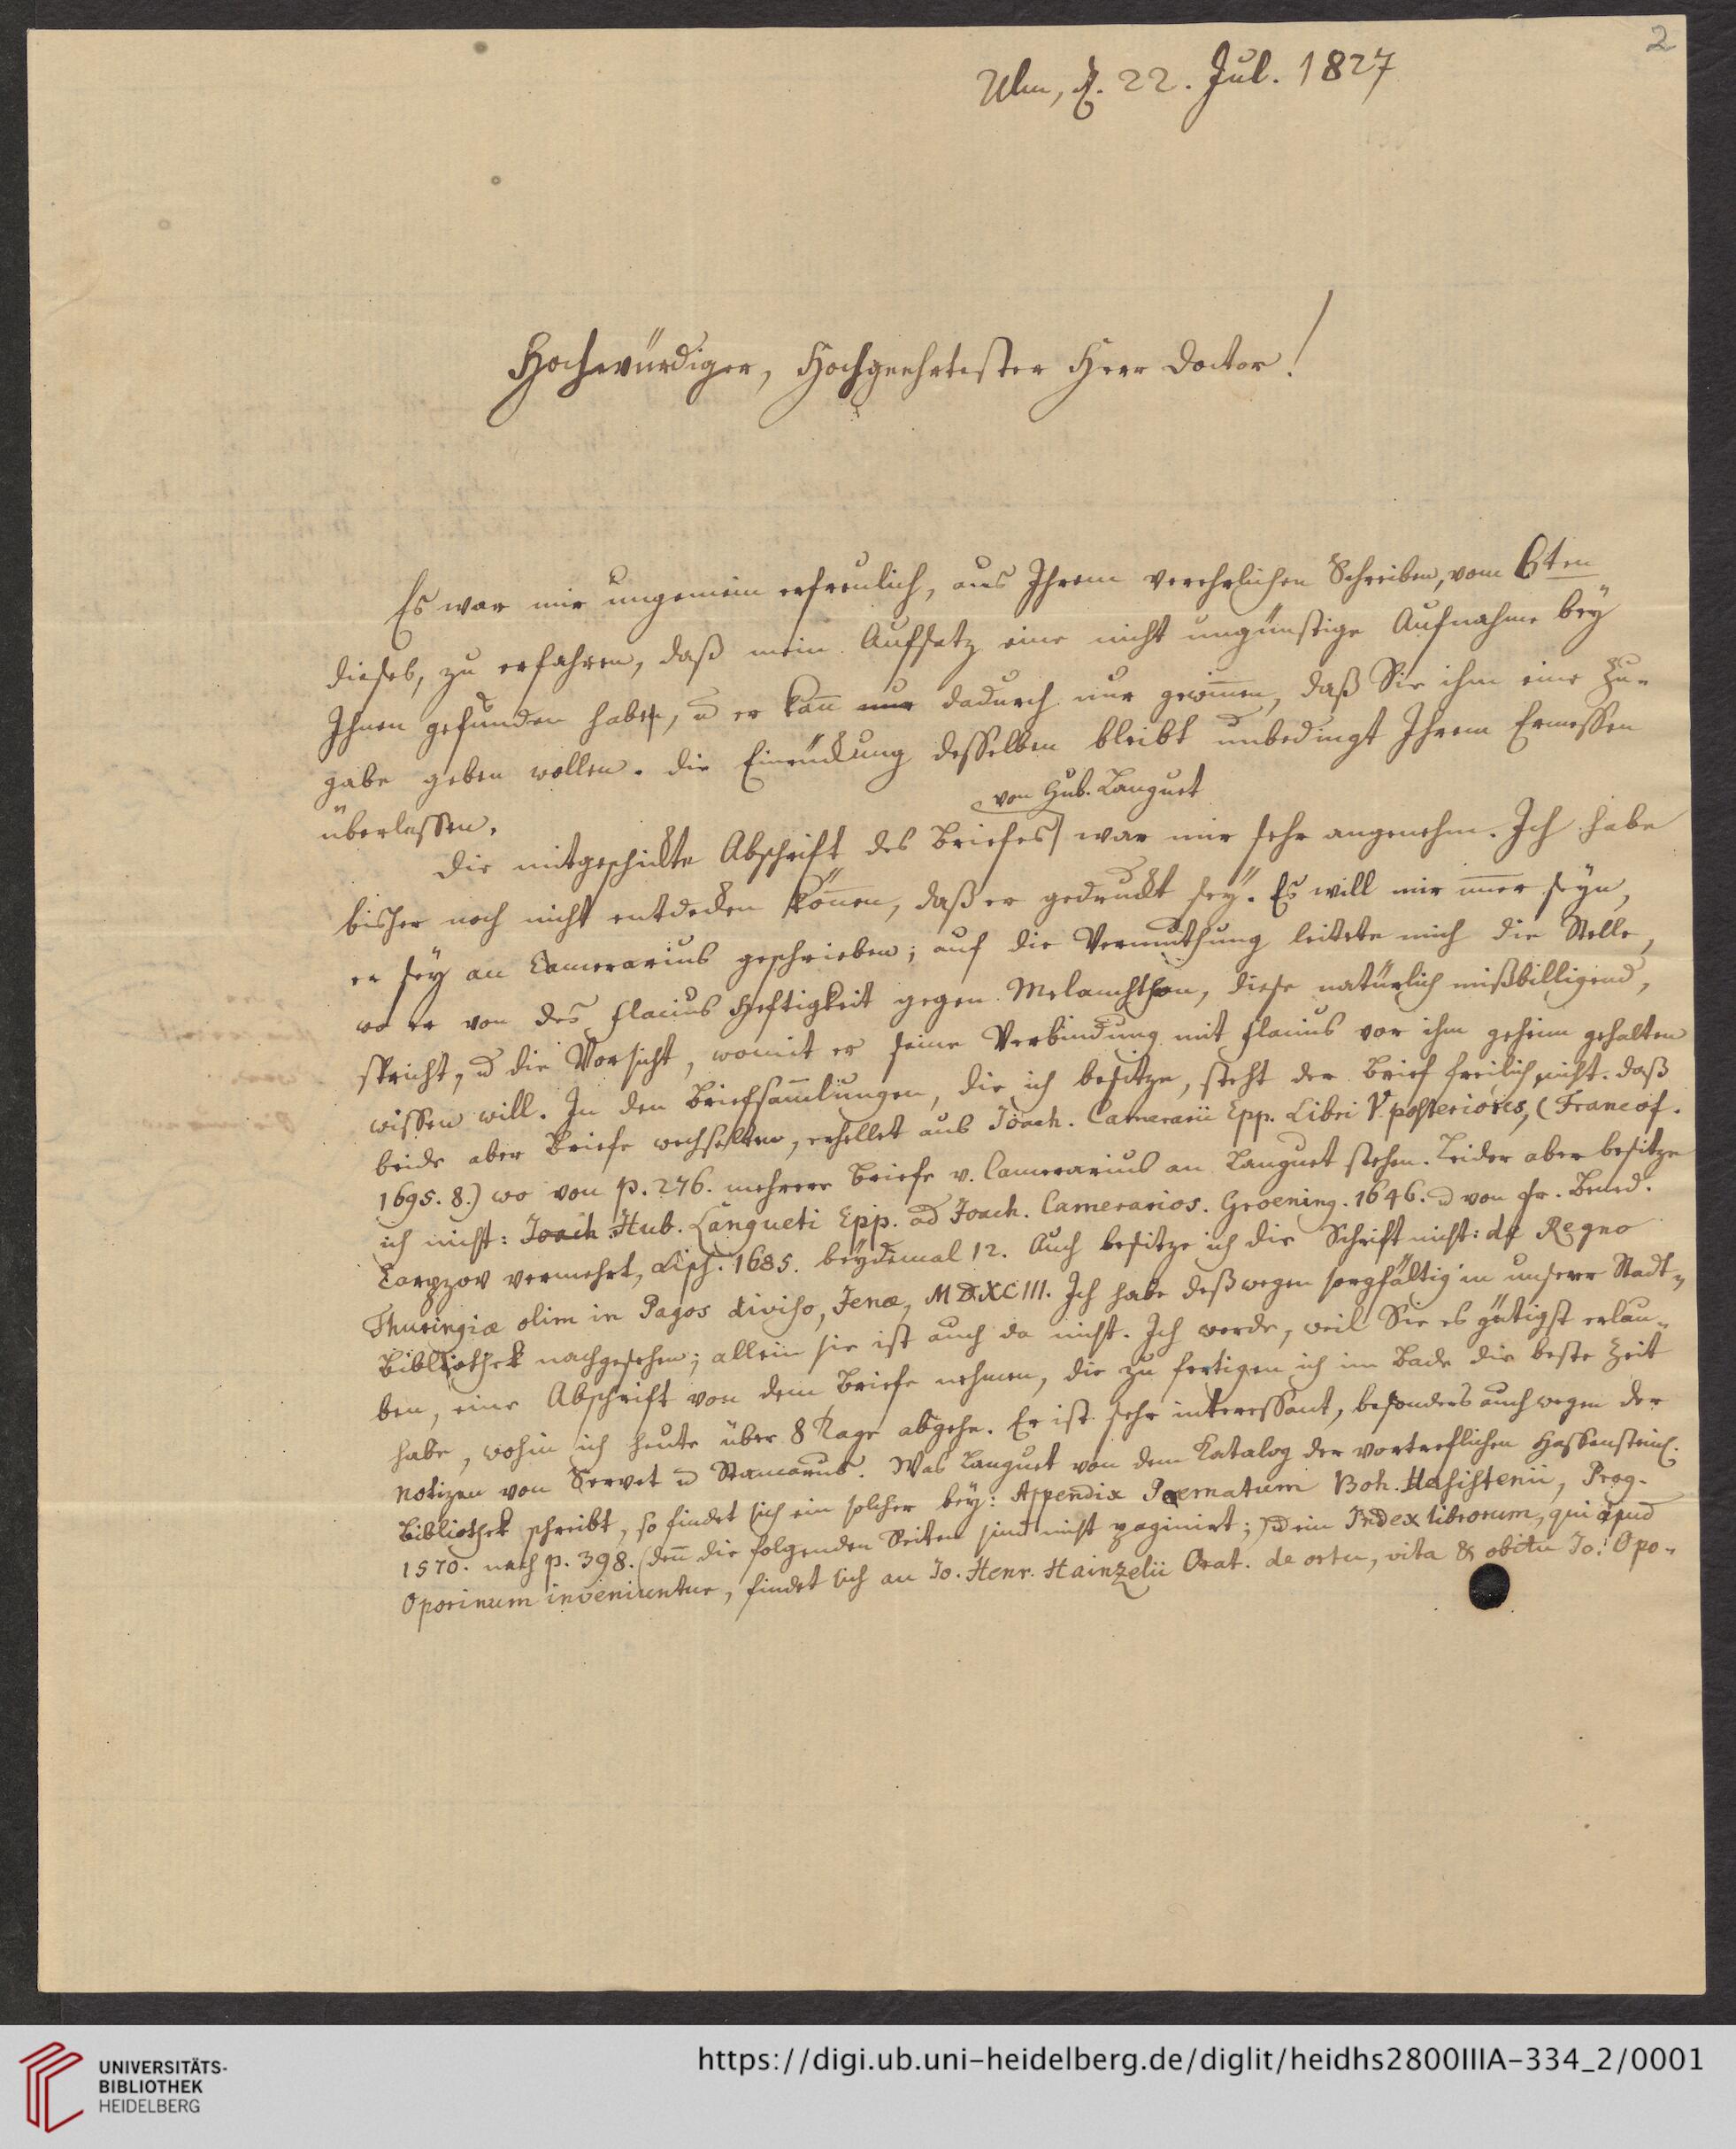 2
Ulm, d. 22. Jul. 1827
Hochwürdiger, Hochgeehrtester Herr Doctor!
Es war mir ungemein erfreulich, aus Ihrem verehrlichen Schreiben, vom 6ten
dieses, zu erfahren, daß mein Aufsatz eine nicht ungünstige Aufnahme bey
Ihnen gefunden habe, u er kan̄ nur dadurch nur gewin̄en, daß Sie ihm eine Zu-
gabe geben wollen. Die Einrückung desselben bleibt unbedingt Ihrem Ermessen
überlassen.
von Hub. Languet
Die mitgeschickte Abschrift des Briefes war mir sehr angenehm. Ich habe
bisher noch nicht entdecken kön̄en, daß er gedruckt sey. Es will mir im̄er seyn,
er sey an Camerarius geschrieben; auf die Vermuthung leitete mich die Stelle,
wo er von des Flacius Heftigkeit gegen Melanchthon, diese natürlich mißbilligend,
spricht, u die Vorsicht, womit er seine Verbindung mit Flacius vor ihm geheim gehalten
wissen will. In den Briefsam̄lungen, die ich besitze, steht der Brief freilich nicht. Daß
beide aber Briefe wechselten, erhellet aus Joach. Camerarii Epp. Libri V. posteriores, (Francof.
1695. 8.) wo von p. 276. mehrere Briefe v. Camerarius an Languet stehen. Leider aber besitze
ich nicht: Joach Hub. Langueti Epp. ad Joach. Camerarios. Groening. 1646. u von Fr. Bened.
Carpzov vermehrt, Lips. 1685. beydemal 12. Auch besitze ich die Schrift nicht: de Regno
Thuringiæ olim in Pagos diviso, Jenæ, MDXCIII. Ich habe deßwegen sorgfältig in unserer Stadt-
Bibliothek nachgesehen; allein sie ist auch da nicht. Ich werde, weil Sie es gütigst erlau-
ben, eine Abschrift von dem Briefe nehmen, die zu fertigen ich im Bade die beste Zeit
habe, wohin ich heute über 8 Tage abgehe. Er ist sehr interessant, besonders auch wegen der
Notizen von Servet u Stancarus. Was Languet von dem Katalog der vortreflichen Hassensteins.
Bibliothek schreibt, so findet sich ein solcher bey: Appendix Poematum Boh. Hasistenii, Prag.
1570. nach p. 398. (den̄ die folgenden Seiten sind nicht paginirt;) u ein Index librorum, qui apud
Oporinum inveniuntur, findet sich an Jo. Henr. Hainzelii Orat. de ortu, vita & obitu Jo. Opo-
UNIVERSITÄTS-
BIBLIOTHEK
HEIDELBERG
https://digi.ub.uni-heidelberg.de/diglit/heidhs2800IIIA-334_2/0001